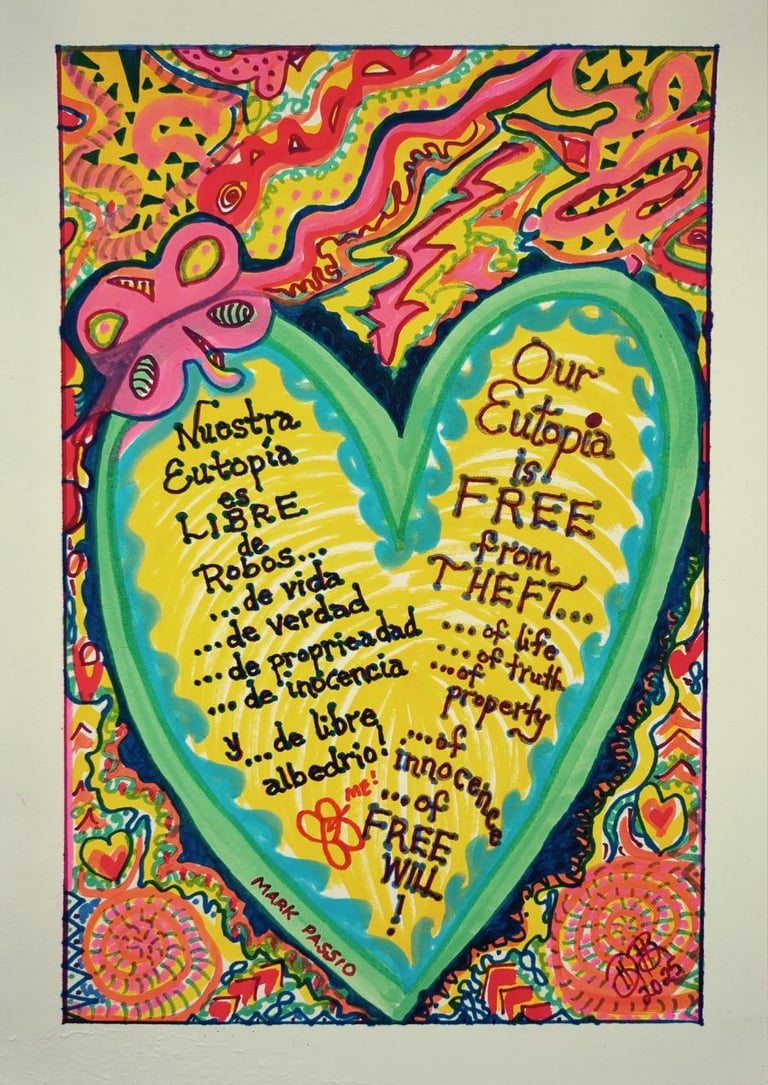 Nuestra
Eutopía
es
LIBRE
de
Robos...
...de vida
...de verdad
...de proprieadad
...de inocencia
y...de libre
albedrio!
Our
Eutopia
is
FREE
from
THEFT...
...of life
...of truth
...of
property
...of
innocence
...of
FREE
WILL
!
ME!
MARK PASSIO
2025